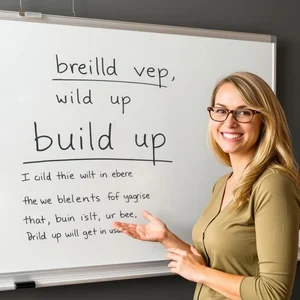 breilld vep,
wild up
build up
I cild thie wilt in ebere
fhe we blelents fof yagrise
that, buin islt, ur bee,
Brild up will get in usu